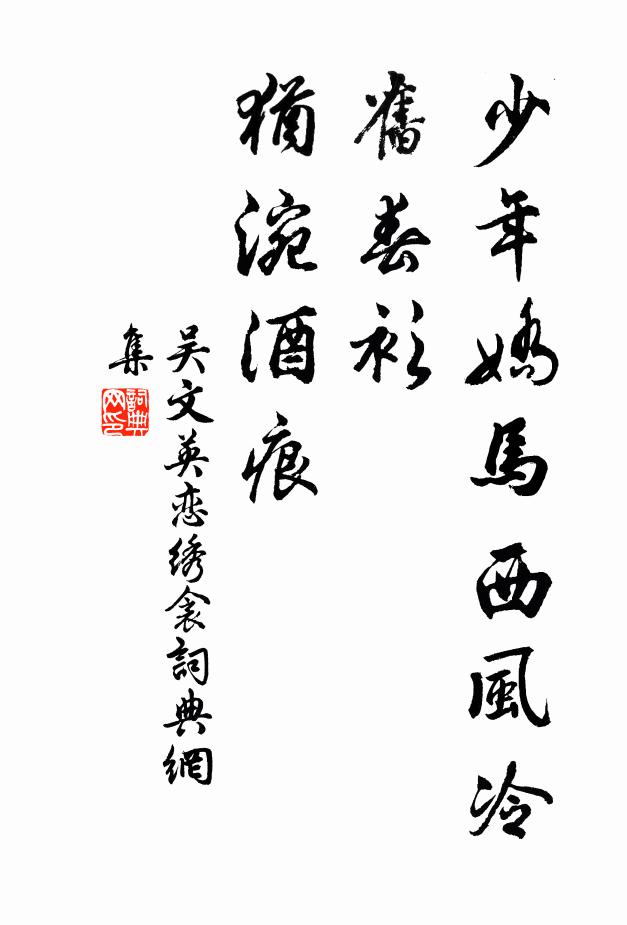 少年嬌馬西風冷
舊春衫
猶涴酒痕
吴文英恋绣衾詞典網
集
詞典網印